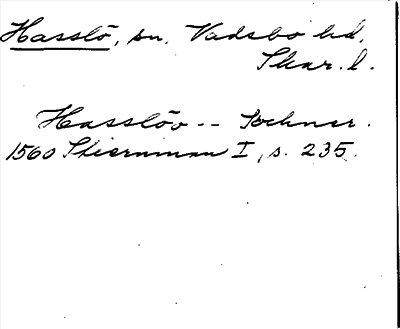 Hasslö, sn. Vadsbo hd,
Skar. l.
Hasslöo -- Sochner.
1560 Stiernman I, s. 235.